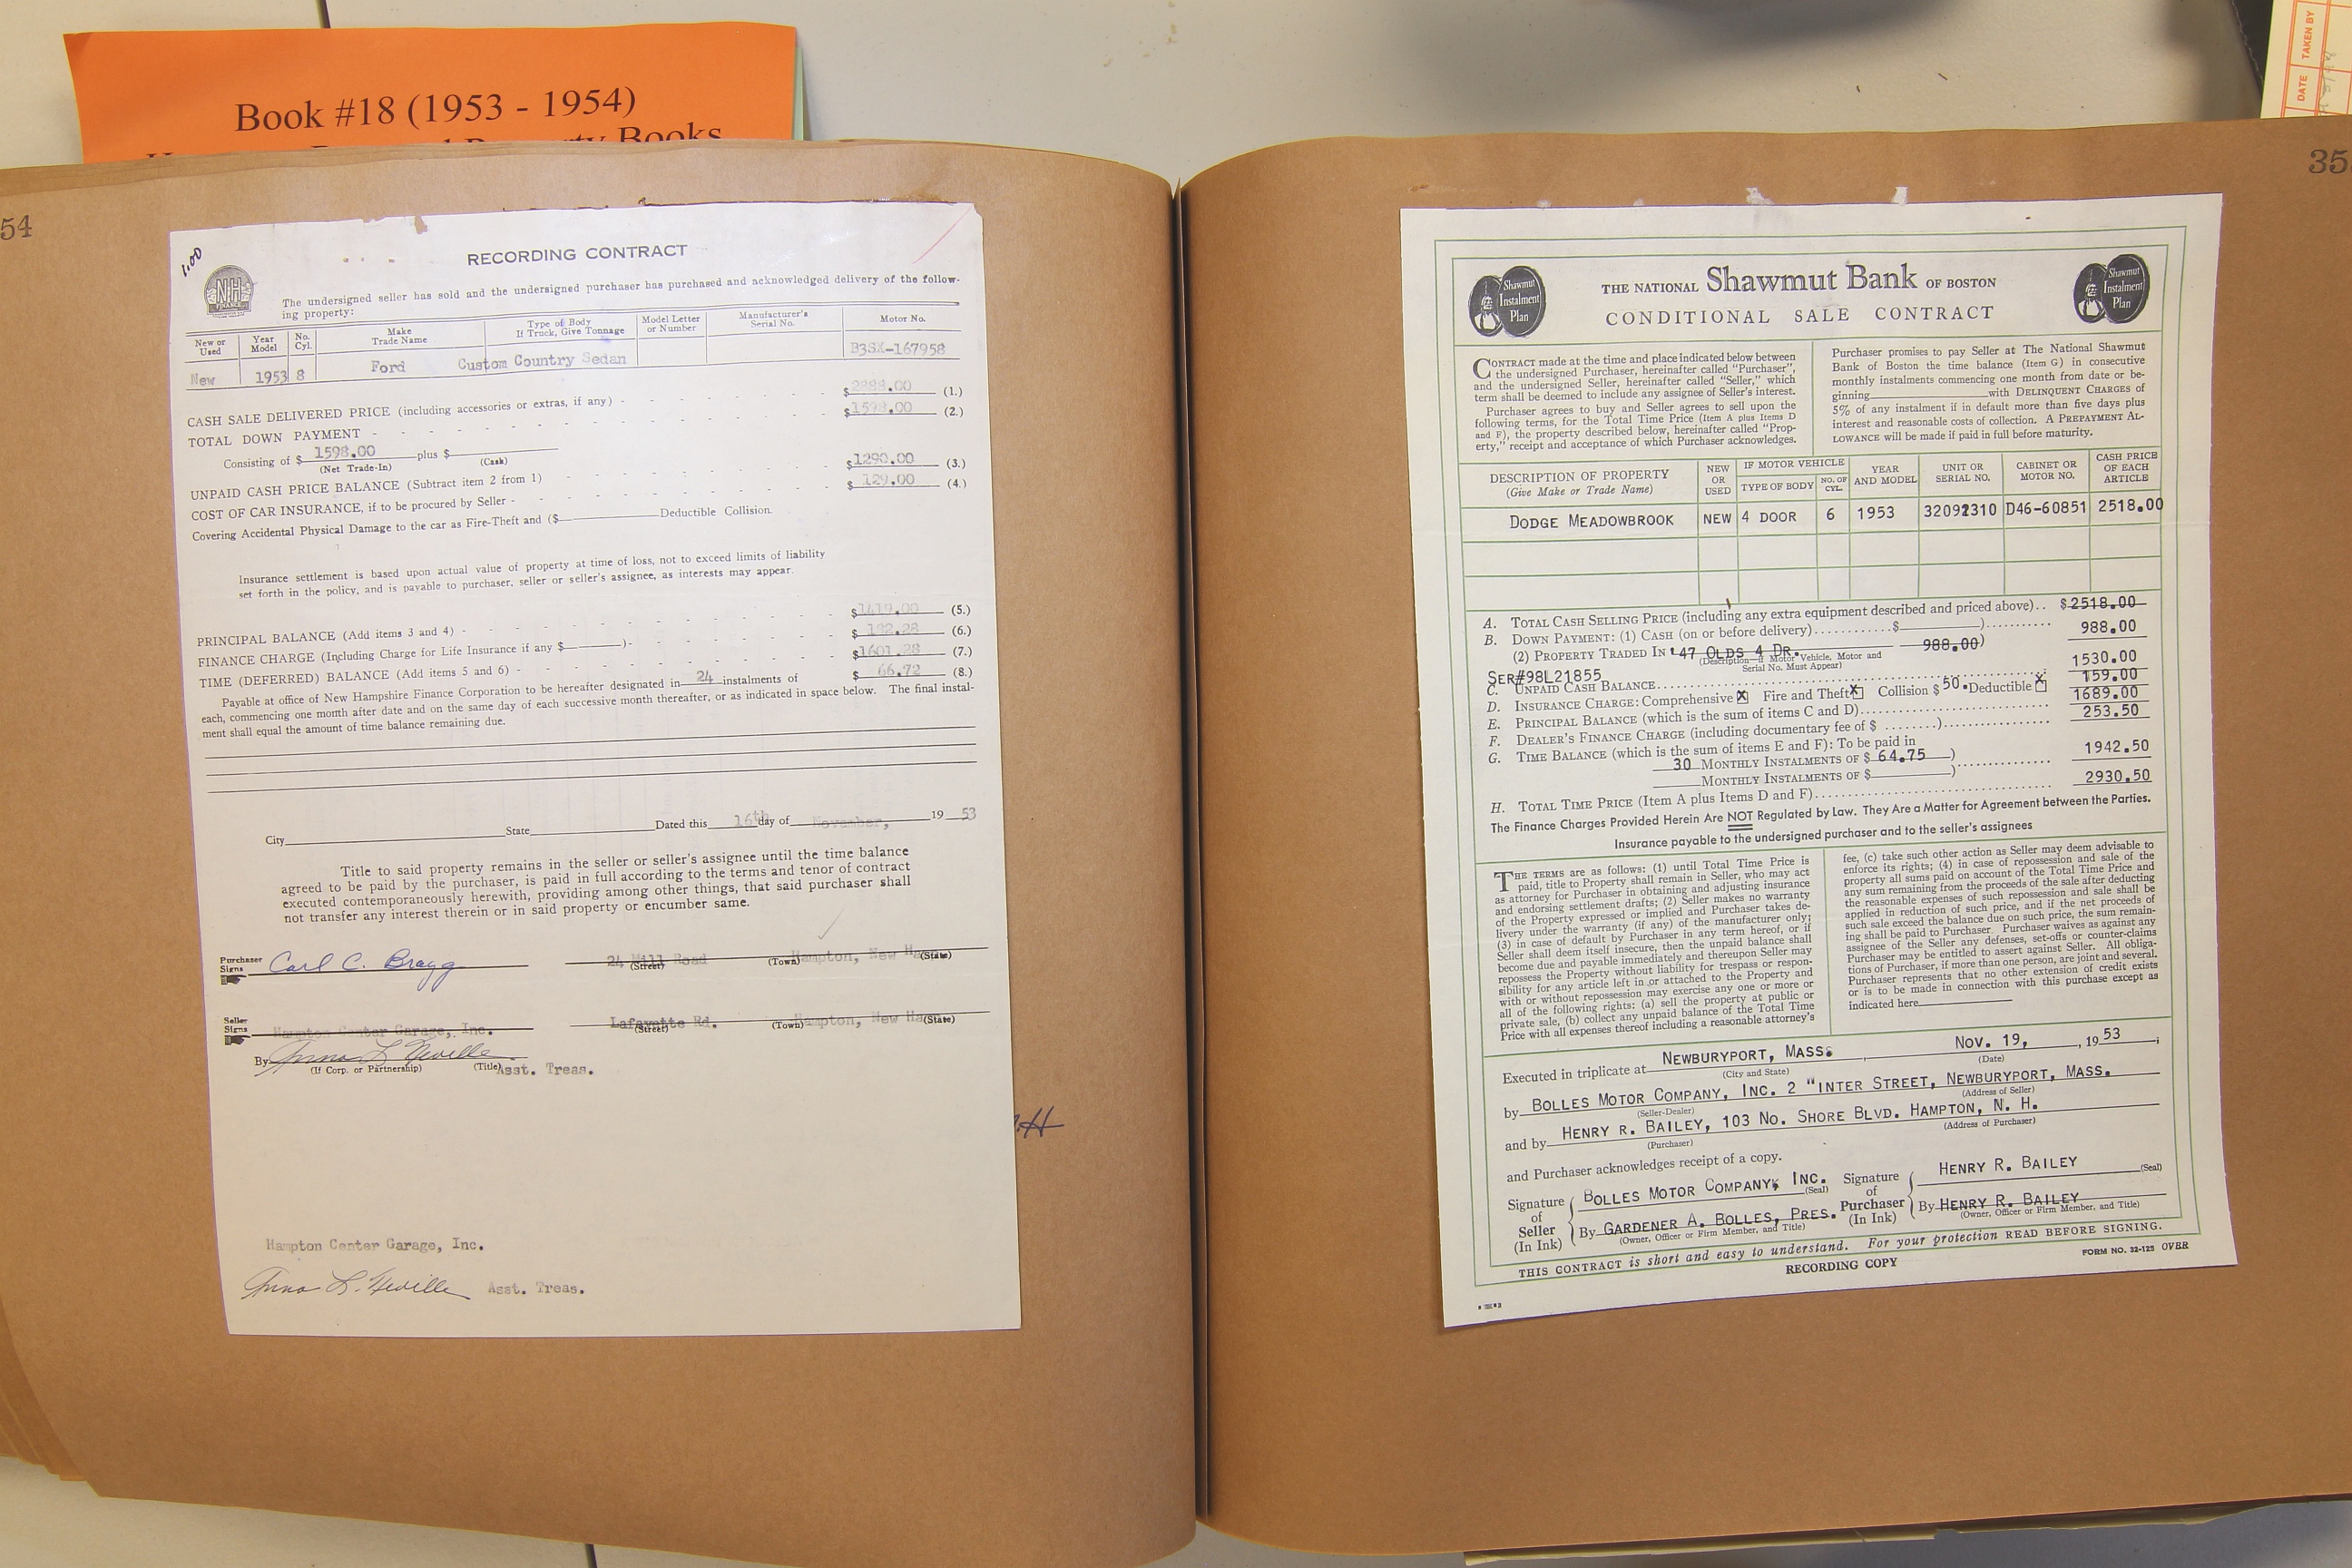 Book #18 (1953 - 1954)
Property Books
DATE TAKEN BY
54
1.00
NH
FINANCE
RECORDING CONTRACT
The undersigned seller has sold and the undersigned purchaser has purchased and acknowledged delivery of the follow-
ing property:
New or Used Year Model No. Cyl. Make Trade Name Type of Body If Truck, Give Tonnage Model Letter or Number Manufacturer's Serial No. Motor No.
New 1953 8 Ford Custom Country Sedan B3SX-167958
CASH SALE DELIVERED PRICE (including accessories or extras, if any) - $2888.00 (1.)
TOTAL DOWN PAYMENT - $1598.00 (2.)
Consisting of $ 1598.00 plus $
(Net Trade-In) (Cash)
UNPAID CASH PRICE BALANCE (Subtract item 2 from 1) $1290.00 (3.)
COST OF CAR INSURANCE, if to be procured by Seller - $ 129.00 (4.)
Covering Accidental Physical Damage to the car as Fire-Theft and ($ Deductible Collision.
Insurance settlement is based upon actual value of property at time of loss, not to exceed limits of liability
set forth in the policy, and is payable to purchaser, seller or seller's assignee, as interests may appear.
PRINCIPAL BALANCE (Add items 3 and 4) - $1419.00 (5.)
FINANCE CHARGE (Including Charge for Life Insurance if any $ )- $ 182.28 (6.)
TIME (DEFERRED) BALANCE (Add items 5 and 6) - $1601.28 (7.)
Payable at office of New Hampshire Finance Corporation to be hereafter designated in 24 instalments of $ 66.72 (8.)
each, commencing one month after date and on the same day of each successive month thereafter, or as indicated in space below. The final instal-
ment shall equal the amount of time balance remaining due.
City State Dated this 16th day of November, 19 53
Title to said property remains in the seller or seller's assignee until the time balance
agreed to be paid by the purchaser, is paid in full according to the terms and tenor of contract
executed contemporaneously herewith, providing among other things, that said purchaser shall
not transfer any interest therein or in said property or encumber same.
Purchaser Signs Carl C. Bragg 24 Mill Road Hampton, New Ha
(Street) (Town) (State)
Seller Signs Hampton Center Garage, Inc. Lafayette Rd. Hampton, New Ha
(Street) (Town) (State)
By Anna L Neville
(If Corp. or Partnership) (Title) Asst. Treas.
.H
Hampton Center Garage, Inc.
Anna L. Neville Asst. Treas.
35
Shawmut Instalment Plan
THE NATIONAL Shawmut Bank OF BOSTON
CONDITIONAL SALE CONTRACT
Shawmut Instalment Plan
CONTRACT made at the time and place indicated below between
the undersigned Purchaser, hereinafter called "Purchaser",
and the undersigned Seller, hereinafter called "Seller," which
term shall be deemed to include any assignee of Seller's interest.
Purchaser agrees to buy and Seller agrees to sell upon the
following terms, for the Total Time Price (Item A plus Items D
and F), the property described below, hereinafter called "Prop-
erty," receipt and acceptance of which Purchaser acknowledges.
Purchaser promises to pay Seller at The National Shawmut
Bank of Boston the time balance (Item G) in consecutive
monthly instalments commencing one month from date or be-
ginning with DELINQUENT CHARGES of
5% of any instalment if in default more than five days plus
interest and reasonable costs of collection. A PREPAYMENT AL-
LOWANCE will be made if paid in full before maturity.
DESCRIPTION OF PROPERTY (Give Make or Trade Name) NEW OR USED IF MOTOR VEHICLE TYPE OF BODY NO. OF CYL. YEAR AND MODEL UNIT OR SERIAL NO. CABINET OR MOTOR NO. CASH PRICE OF EACH ARTICLE
DODGE MEADOWBROOK NEW 4 DOOR 6 1953 32092310 D46-60851 2518.00
A. TOTAL CASH SELLING PRICE (including any extra equipment described and priced above).. $2518.00
B. DOWN PAYMENT: (1) CASH (on or before delivery)...........$ )..........
(2) PROPERTY TRADED IN '47 OLDS 4 DR. 988.00) 988.00
(Description—if Motor Vehicle, Motor and Serial No. Must Appear)
SER#98L21855
C. UNPAID CASH BALANCE........ 1530.00
D. INSURANCE CHARGE: Comprehensive X Fire and Theft X Collision $ 50. Deductible X 159.00
E. PRINCIPAL BALANCE (which is the sum of items C and D)........ 1689.00
F. DEALER'S FINANCE CHARGE (including documentary fee of $ ........)........ 253.50
G. TIME BALANCE (which is the sum of items E and F): To be paid in
30 MONTHLY INSTALMENTS OF $ 64.75 )........ 1942.50
MONTHLY INSTALMENTS OF $ )
H. TOTAL TIME PRICE (Item A plus Items D and F)........ 2930.50
The Finance Charges Provided Herein Are NOT Regulated by Law. They Are a Matter for Agreement between the Parties.
Insurance payable to the undersigned purchaser and to the seller's assignees
THE TERMS are as follows: (1) until Total Time Price is
paid, title to Property shall remain in Seller, who may act
as attorney for Purchaser in obtaining and adjusting insurance
and endorsing settlement drafts; (2) Seller makes no warranty
of the Property expressed or implied and Purchaser takes de-
livery under the warranty (if any) of the manufacturer only;
(3) in case of default by Purchaser in any term hereof, or if
Seller shall deem itself insecure, then the unpaid balance shall
become due and payable immediately and thereupon Seller may
repossess the Property without liability for trespass or respon-
sibility for any article left in or attached to the Property and
with or without repossession may exercise any one or more or
all of the following rights: (a) sell the property at public or
private sale, (b) collect any unpaid balance of the Total Time
Price with all expenses thereof including a reasonable attorney's
fee, (c) take such other action as Seller may deem advisable to
enforce its rights; (4) in case of repossession and sale of the
property all sums paid on account of the Total Time Price and
any sum remaining from the proceeds of the sale after deducting
the reasonable expenses of such repossession and sale shall be
applied in reduction of such price, and if the net proceeds of
such sale exceed the balance due on such price, the sum remain-
ing shall be paid to Purchaser. Purchaser waives as against any
assignee of the Seller any defenses, set-offs or counter-claims
Purchaser may be entitled to assert against Seller. All obliga-
tions of Purchaser, if more than one person, are joint and several.
Purchaser represents that no other extension of credit exists
or is to be made in connection with this purchase except as
indicated here
Executed in triplicate at NEWBURYPORT, MASS. , Nov. 19, , 19 53 ;
(City and State) (Date)
by BOLLES MOTOR COMPANY, INC. 2 "INTER STREET, NEWBURYPORT, MASS.
(Seller-Dealer) (Address of Seller)
and by HENRY R. BAILEY, 103 NO. SHORE BLVD. HAMPTON, N. H.
(Purchaser) (Address of Purchaser)
and Purchaser acknowledges receipt of a copy.
Signature of Seller (In Ink) BOLLES MOTOR COMPANY, INC. (Seal)
By GARDENER A. BOLLES, PRES.
(Owner, Officer or Firm Member, and Title)
Signature of Purchaser (In Ink) HENRY R. BAILEY (Seal)
By HENRY R. BAILEY
(Owner, Officer or Firm Member, and Title)
THIS CONTRACT is short and easy to understand. For your protection READ BEFORE SIGNING.
RECORDING COPY
FORM NO. 32-125 OVER